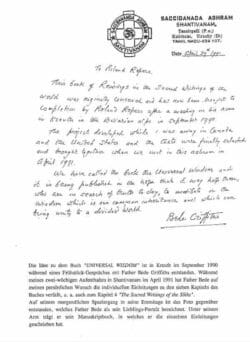 SACCIDANANDA ASHRAM
SHANTIVANAM,
Tannirpalli (P.o.)
Kulittalai, Tiruchy Dt
TAMIL NADU-639 107
Date April 29th 1991.
To Roland Ropers
This book of Readings in the Sacred Writings of the
world was originally conceived and has now been brought to
completion by Roland Ropers after a meeting in his home
in Kreuth in the Bavarian Alps in September 1990.
The project developed while I was away in Canada
and the United States and the texts were finally collected
and brought together when we met in this ashram in
April 1991.
We have called the book the Universal Wisdom and
it is being published in the hope that it may help those,
who are in search of truth to-day, to meditate on the
wisdom which is our common inheritance and which can
bring unity to a divided world.
Bede Griffiths
Die Idee zu dem Buch "UNIVERSAL WISDOM" ist in Kreuth im September 1990
während eines Frühstück-Gespräches mit Father Bede Griffiths entstanden. Während
meines zwei-wöchigen Aufenthaltes in Shantivanam im April 1991 hat Father Bede auf
meinen persönlichen Wunsch die individuellen Einleitungen zu den sieben Kapiteln des
Buches verfaßt, u. a. auch zu Kapitel 4 "The Sacred Writings of the Sikhs".
Auf seinem morgendlichen Spaziergang in seine Eremitage ist das Foto gegenüber
entstanden, welches Father Bede als sein Lieblings-Porträt bezeichnet. Unter seinem
Arm trägt er sein Manuskriptbuch, in welches er die einzelnen Einleitungen
geschrieben hat.